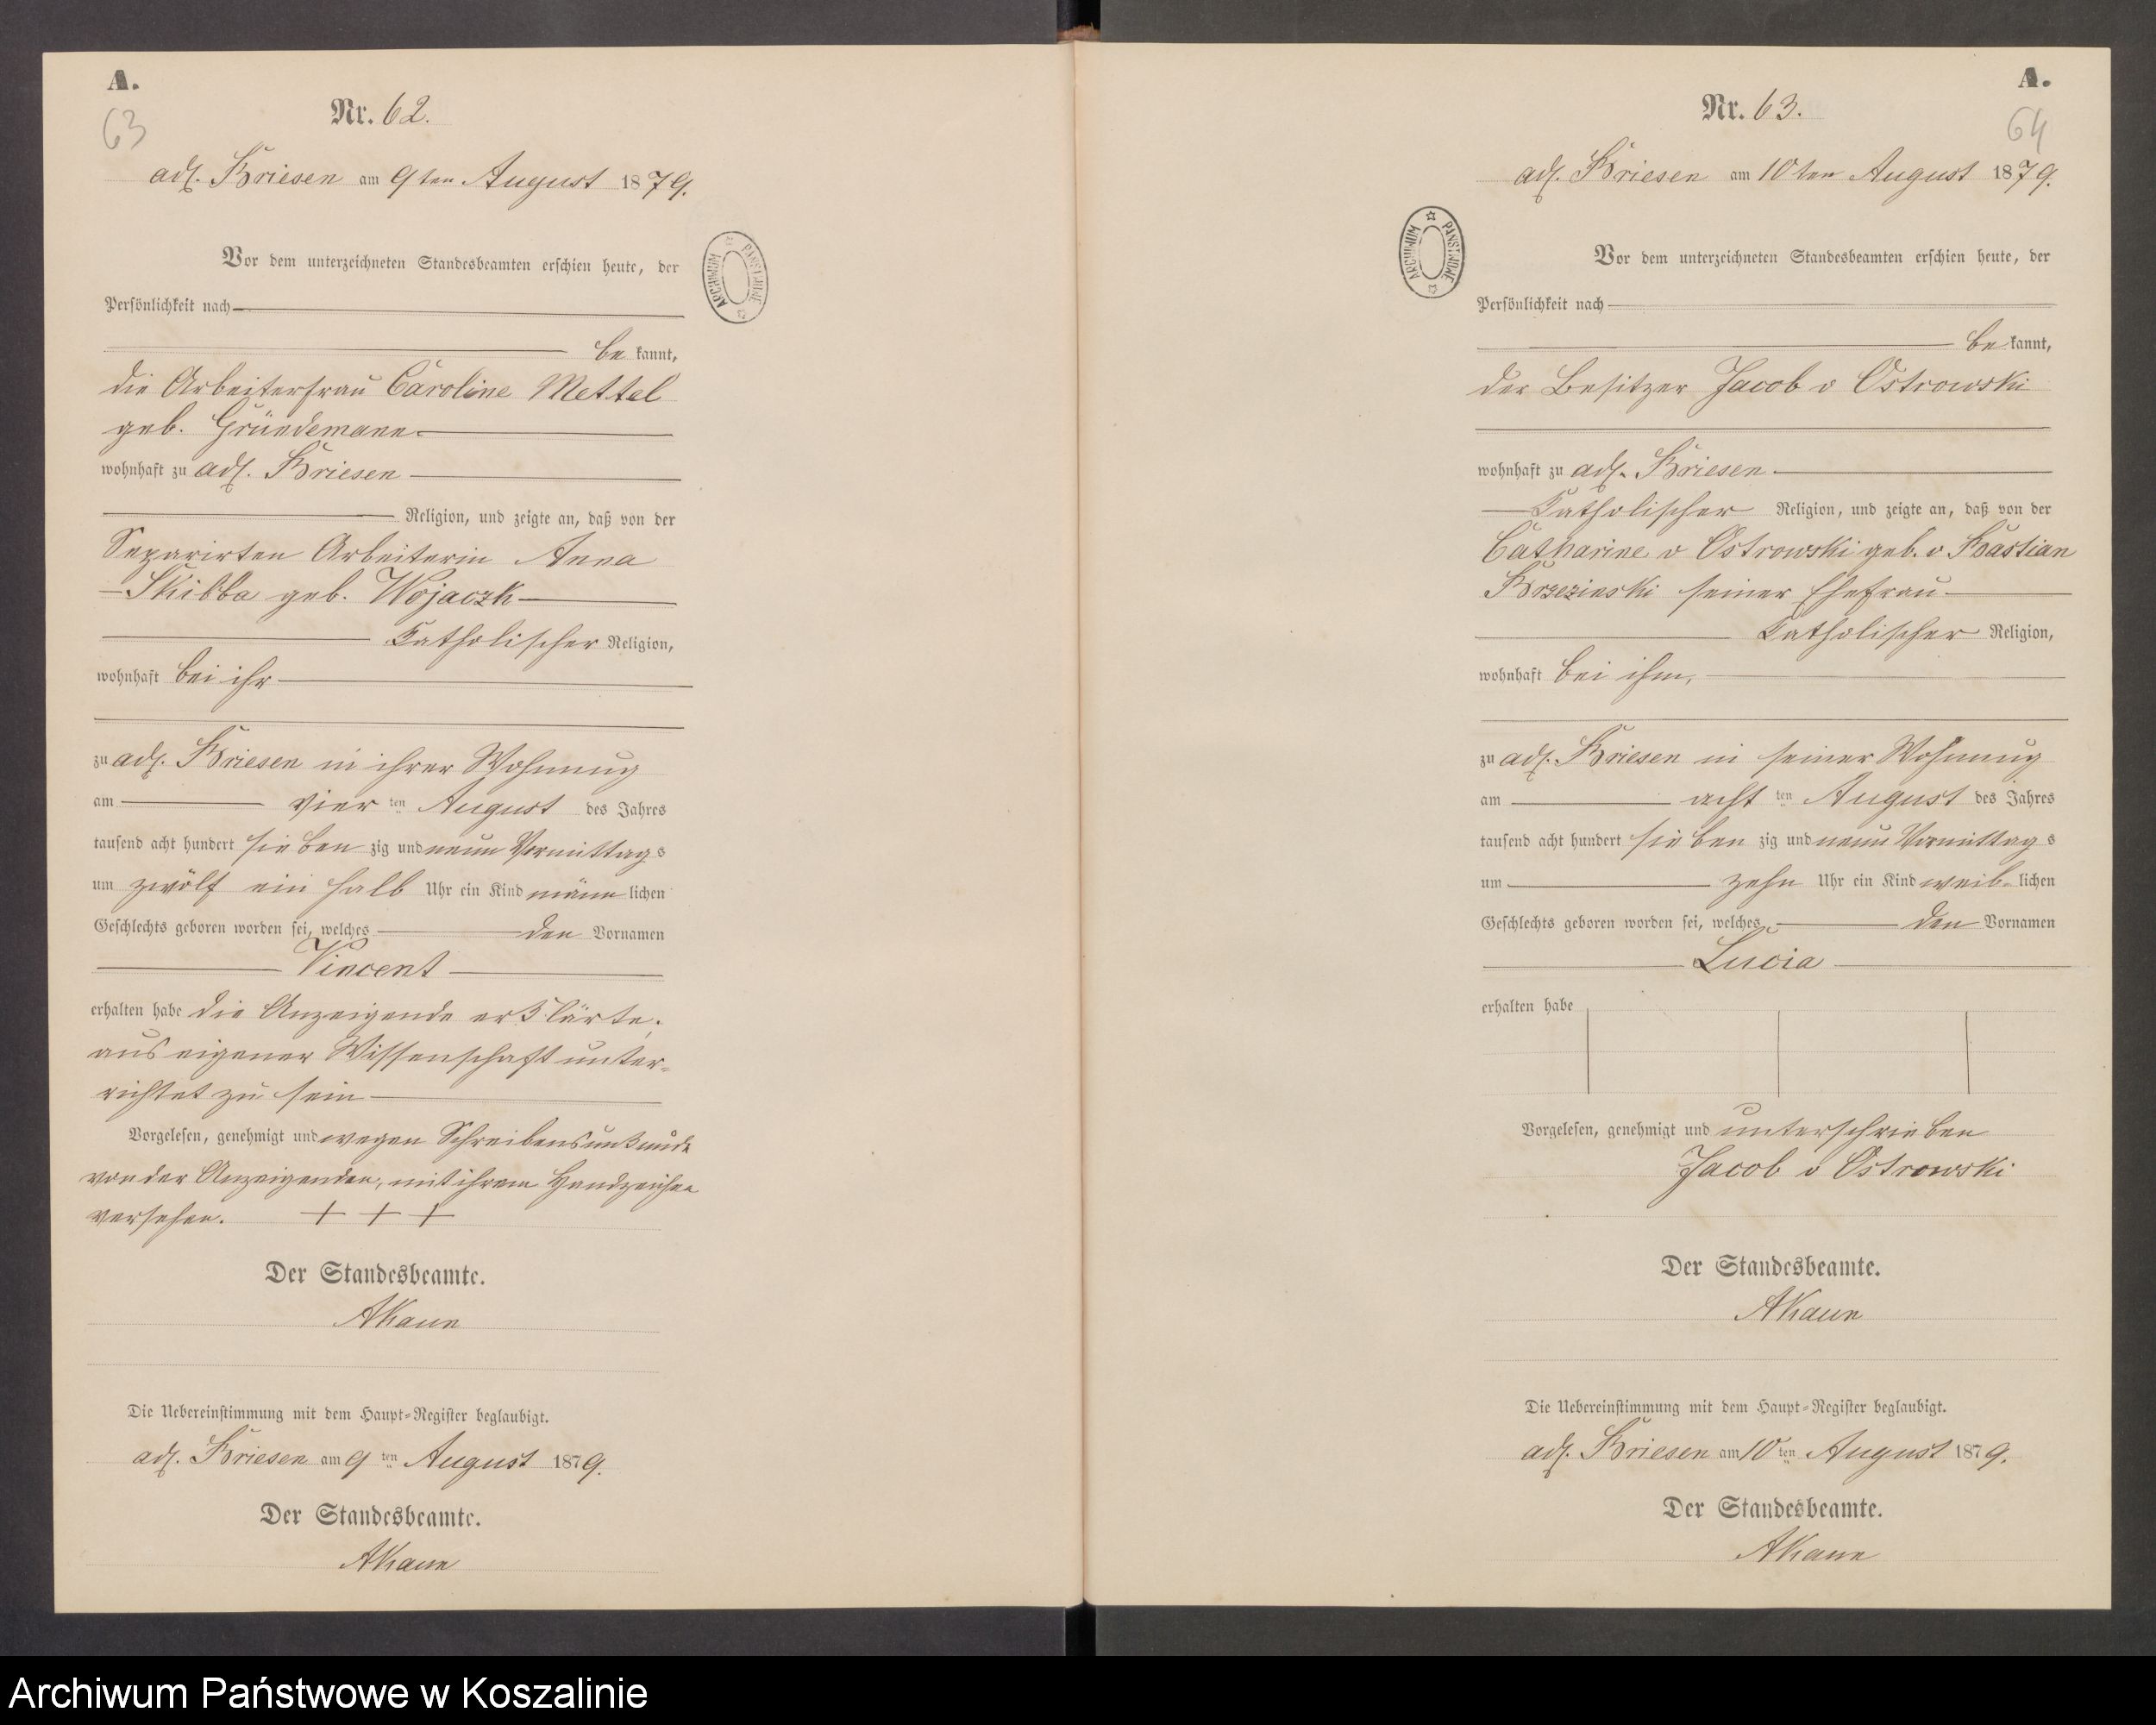 A.
63
Nr. 62.
adl. Briesen am 9ten August 1879.
Vor dem unterzeichneten Standesbeamten erschien heute, der
Persönlichkeit nach
be kannt,
die Arbeiterfrau Caroline Mettel
geb. Gründemann
wohnhaft zu adl. Briesen
Religion, und zeigte an, daß von der
Separirten Arbeiterin Anna
Skibba geb. Wojaczk
Katholischer Religion,
wohnhaft bei ihr
zu adl. Briesen in ihrer Wohnung
am vier ten August des Jahres
tausend acht hundert sieben zig und neun Vormittag s
um zwölf ein halb Uhr ein Kind männ lichen
Geschlechts geboren worden sei, welches den Vornamen
Vincent
erhalten habe die Anzeigende erklärte,
aus eigener Wissenschaft unter-
richtet zu sein
Vorgelesen, genehmigt und wegen Schreibensunkunde
von der Anzeigenden, mit ihrem Handzeichen
versehen. + + +
Der Standesbeamte.
AKaun
Die Uebereinstimmung mit dem Haupt-Register beglaubigt.
adl. Briesen am 9 ten August 1879.
Der Standesbeamte.
AKaun
ARCHIWUM PAŃSTWOWE
A.
64
Nr. 63.
adl. Briesen am 10ten August 1879.
ARCHIWUM PAŃSTWOWE
Vor dem unterzeichneten Standesbeamten erschien heute, der
Persönlichkeit nach
be kannt,
der Besitzer Jacob v Ostrowski
wohnhaft zu adl. Briesen
Katholischer Religion, und zeigte an, daß von der
Catharine v Ostrowski geb. v Bastian
Brzezinski seiner Ehefrau
Katholischer Religion,
wohnhaft bei ihm,
zu adl. Briesen in seiner Wohnung
am acht ten August des Jahres
tausend acht hundert sieben zig und neun Vormittag s
um zehn Uhr ein Kind weib- lichen
Geschlechts geboren worden sei, welches den Vornamen
Lucia
erhalten habe
Vorgelesen, genehmigt und unterschrieben
Jacob v Ostrowski
Der Standesbeamte.
AKaun
Die Uebereinstimmung mit dem Haupt-Register beglaubigt.
adl. Briesen am 10 ten August 1879.
Der Standesbeamte.
AKaun
Archiwum Państwowe w Koszalinie